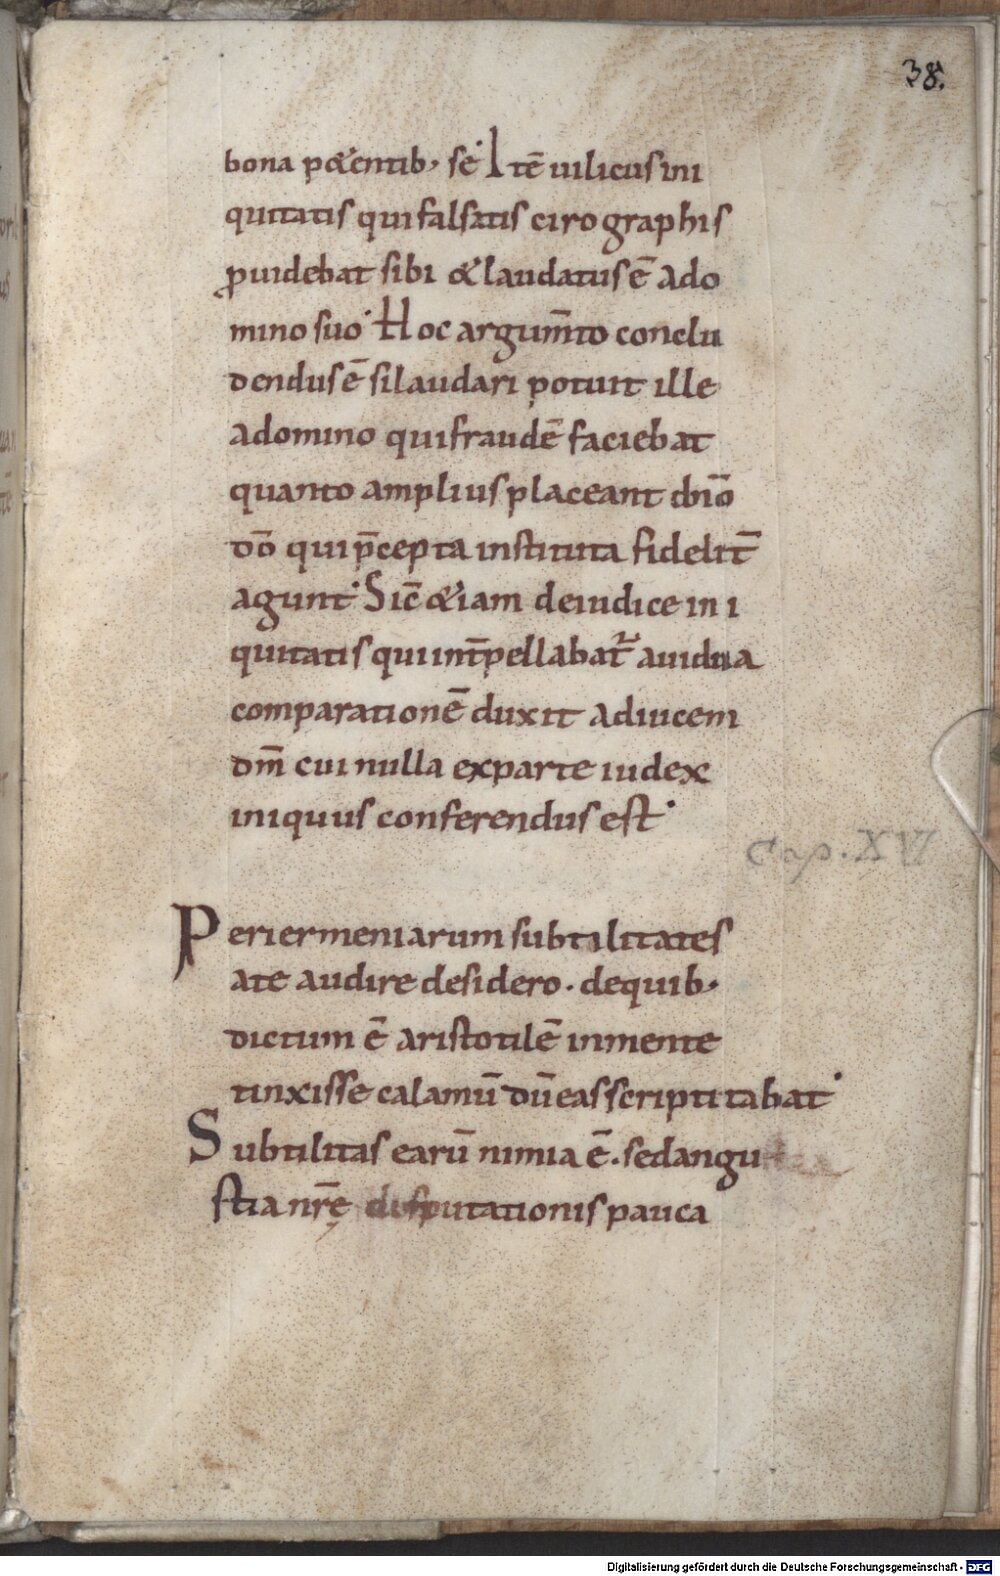 38.
bona p&entib; sē Itē uilicus ini
quitatis qui falsatis cirographis
ꝓuidebat sibi & laudatus ē ado
mino suo· Hoc argum̄to conclu
dendus ē si laudari potuit ille
adomino qui fraudē faciebat
quanto amplius placeant dn̄o
dō qui p̄cepta instituta fidelit̄
agunt· Sic̄ &iam deiudice in i
quitatis qui int̄pellabat̄ auidua
comparationē duxit adiucem
dm̄ cui nulla exparte iudex
iniquus conferendus est·
Cap. XVI
Periermeniarum subtilitates
ate audire desidero· dequib;
dictum ē aristotilē inmente
tinxisse calamū dū eas scriptitabat·
Subtilitas earū nimia ē· sed angu
stia nr̄ę disputationis pauca
Digitalisierung gefördert durch die Deutsche Forschungsgemeinschaft - DFG